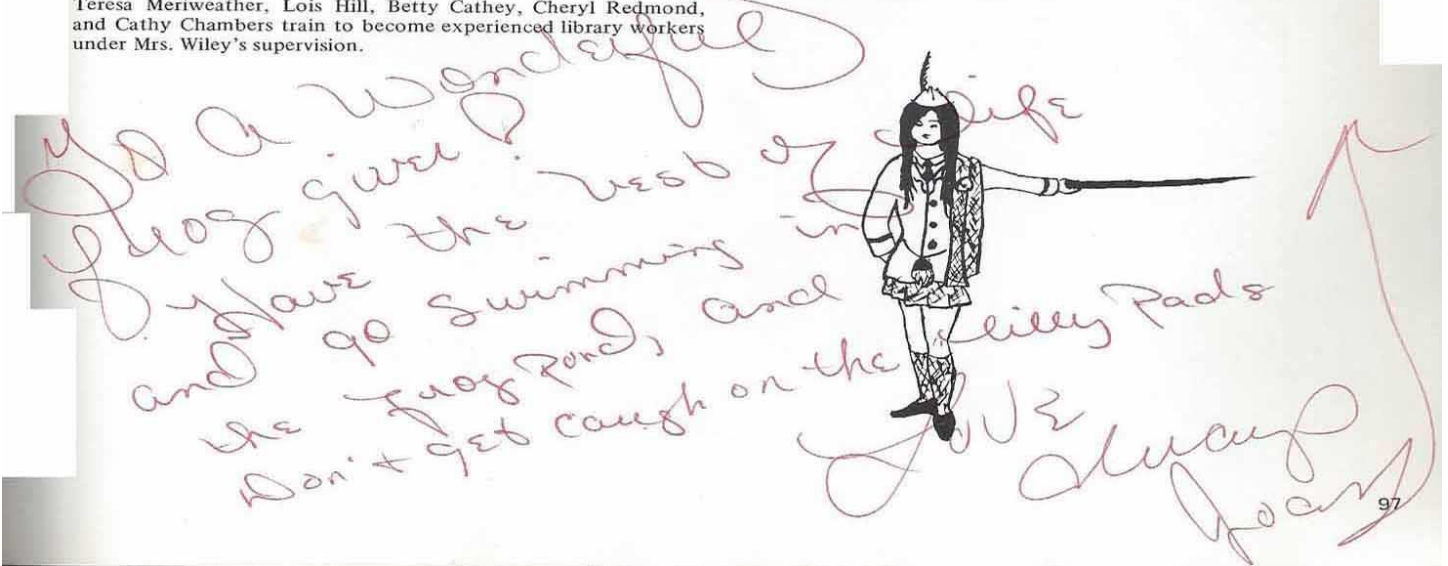 Teresa Meriweather, Lois Hill, Betty Cathey, Cheryl Redmond,
and Cathy Chambers train to become experienced library workers
under Mrs. Wiley's supervision.
To a Wonderful
Frog girl!
Have the best of life
and go swimming in
the frog pond, and
Don't get caugh on the lilly Pads
Love
Always
Joan
97